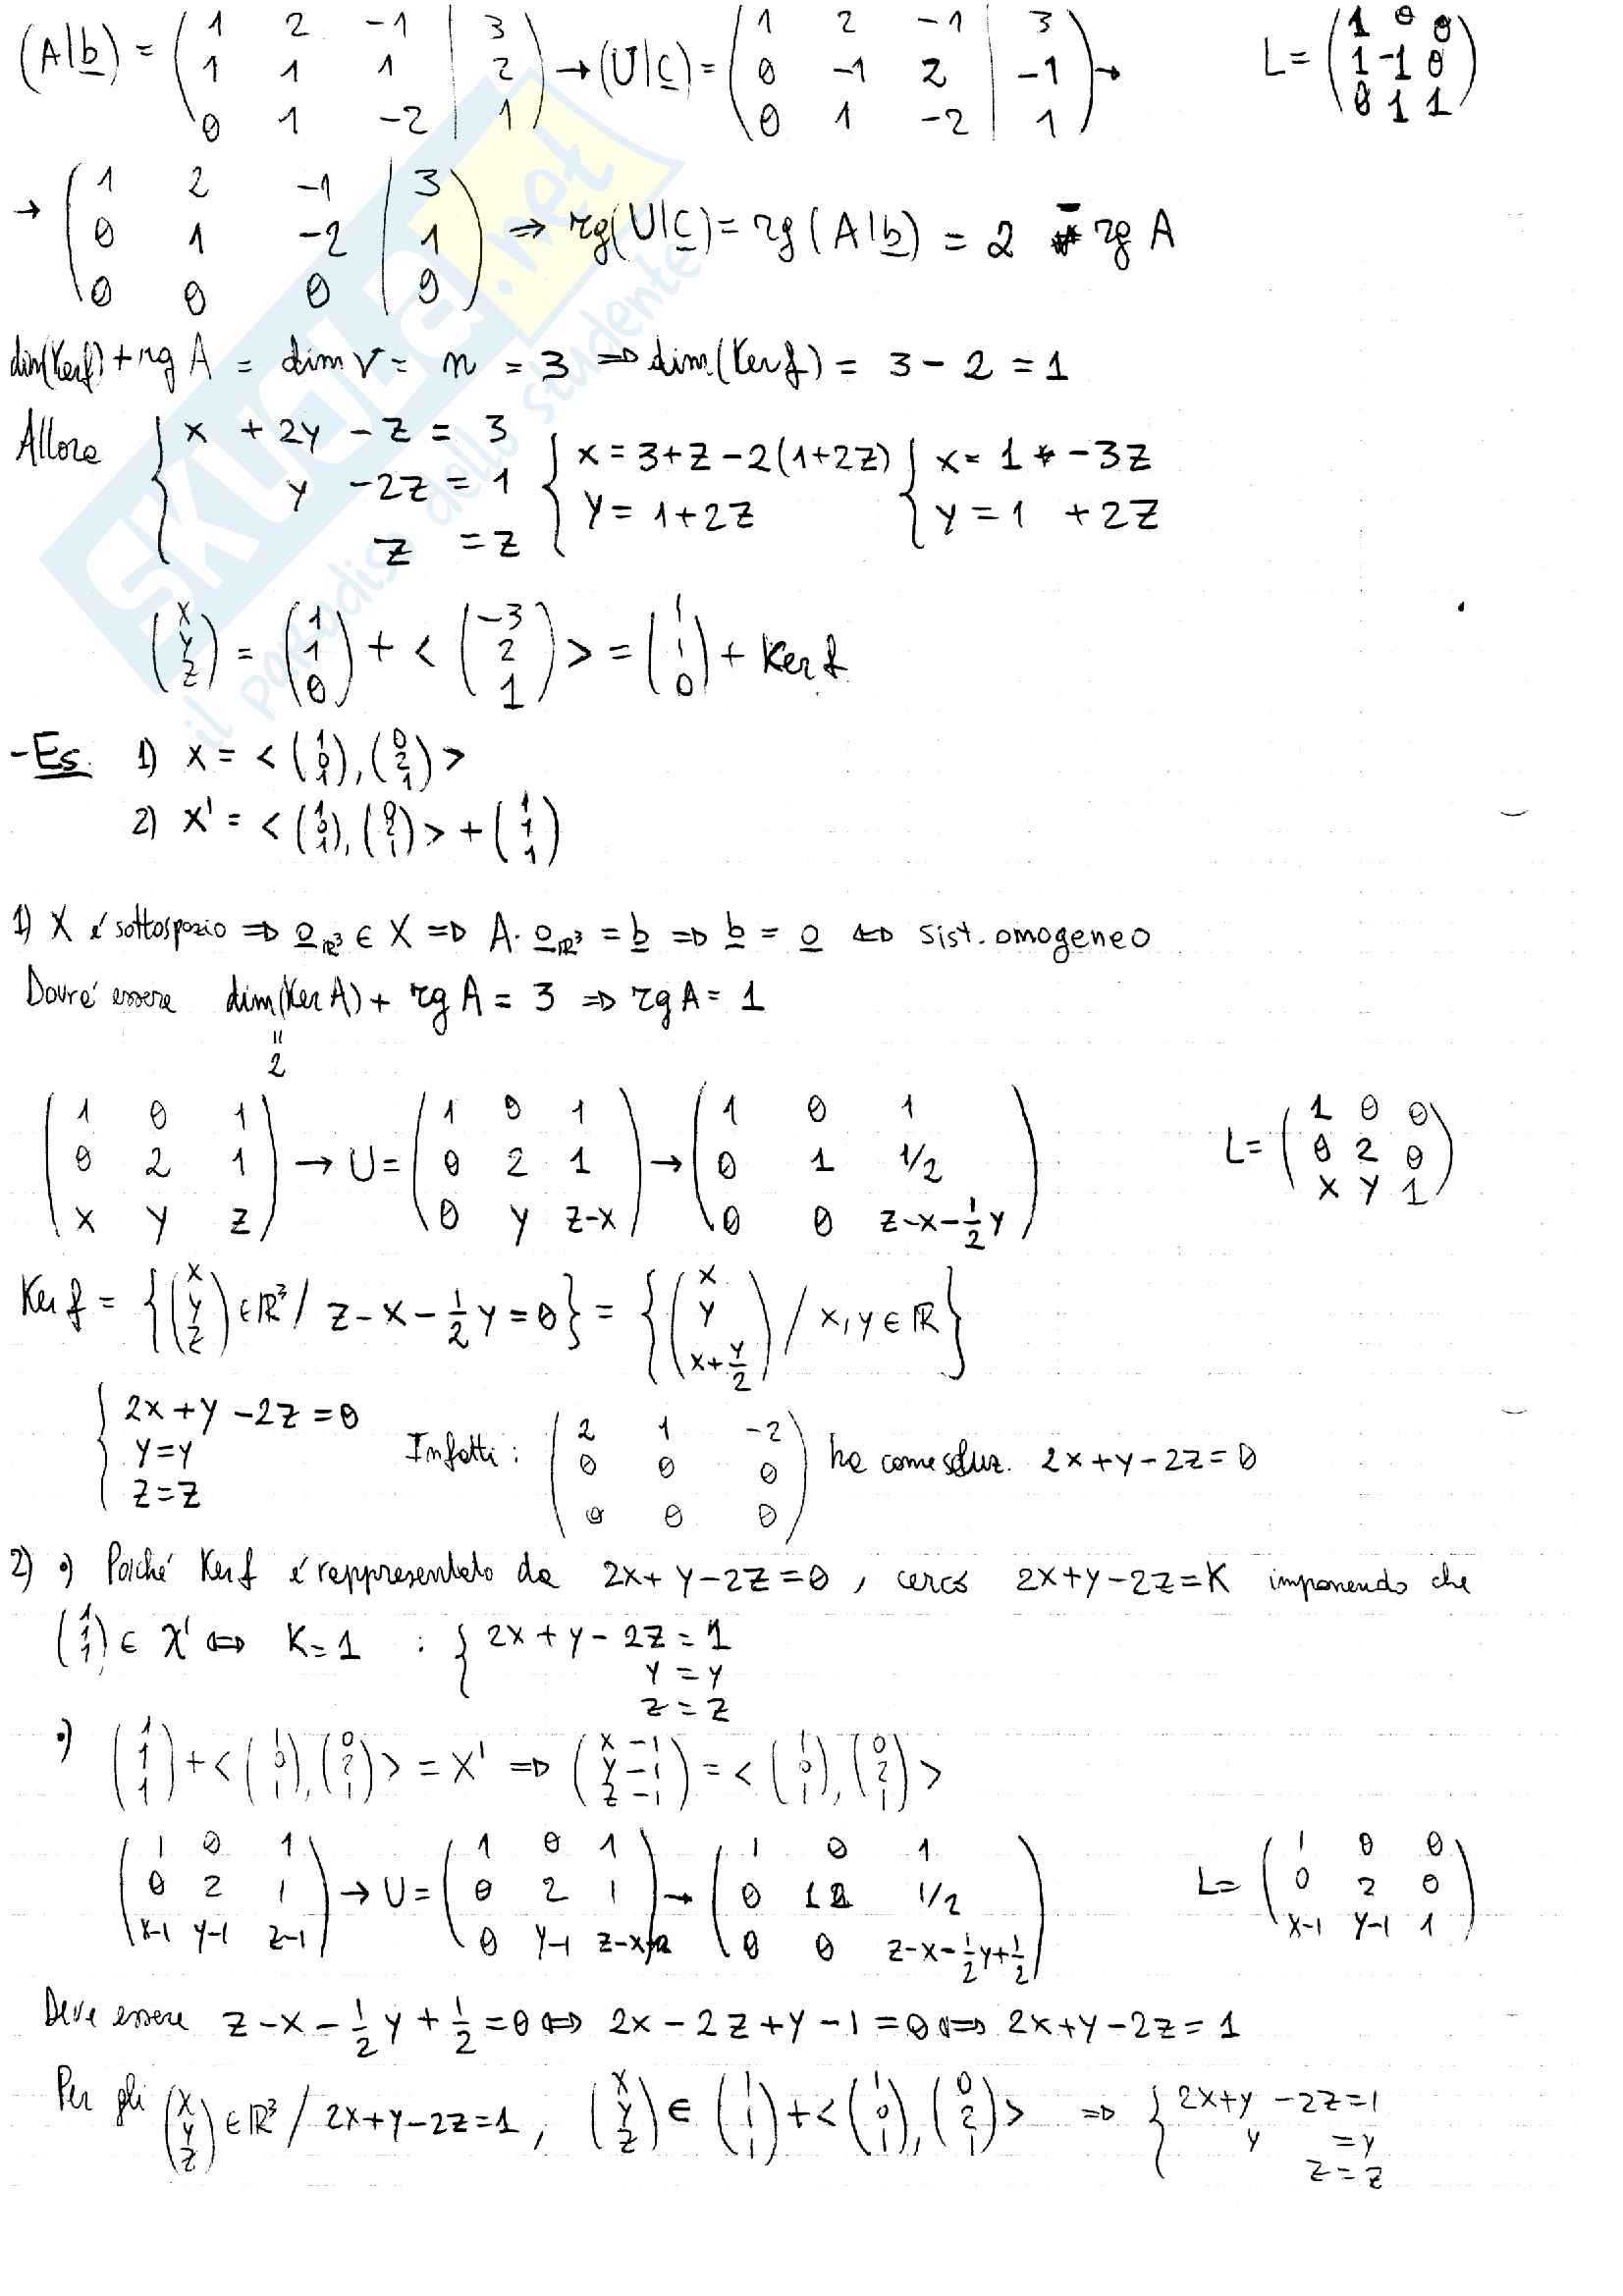 (A|b) = ( 1 2 -1 | 3 ; 1 1 1 | 2 ; 0 1 -2 | 1 ) → (U|c) = ( 1 2 -1 | 3 ; 0 -1 2 | -1 ; 0 1 -2 | 1 ) → L = ( 1 0 0 ; 1 -1 0 ; 0 1 1 )
→ ( 1 2 -1 | 3 ; 0 1 -2 | 1 ; 0 0 0 | 0 ) ⇒ rg(U|c) = rg(A|b) = 2 = rg A
dim(Ker f) + rg A = dim V = n = 3 ⇒ dim(Ker f) = 3 - 2 = 1
Allora { x + 2y - z = 3 ; y - 2z = 1 ; z = z { x = 3+z-2(1+2z) ; y = 1+2z { x = 1 -3z ; y = 1 +2z
(x y z) = (1 1 0) + < (-3 2 1) > = (1 1 0) + Ker f
- Es. 1) X = < (1 0 1), (0 2 1) >
2) X' = < (1 0 1), (0 2 1) > + (1 1 1)
1) X é sottospazio ⇒ 0_ℝ³ ∈ X ⇒ A · 0_ℝ³ = b ⇒ b = 0 ⇔ sist. omogeneo
Dovrá essere dim(Ker A) + rg A = 3 ⇒ rg A = 1
" 2
( 1 0 1 ; 0 2 1 ; x y z ) → U = ( 1 0 1 ; 0 2 1 ; 0 y z-x ) → ( 1 0 1 ; 0 1 1/2 ; 0 0 z-x-1/2 y ) L = ( 1 0 0 ; 0 2 0 ; x y 1 )
Ker f = { (x y z) ∈ ℝ³ / z - x - 1/2 y = 0 } = { (x y x+y/2) / x, y ∈ ℝ }
{ 2x + y - 2z = 0 ; y = y ; z = z Infatti: ( 2 1 -2 ; 0 0 0 ; 0 0 0 ) ha come soluz. 2x + y - 2z = 0
2) •) Poiché Ker f é rappresentato da 2x + y - 2z = 0, cerco 2x + y - 2z = K imponendo che
(1 1 1) ∈ X' ⇔ K = 1 : { 2x + y - 2z = 1 ; y = y ; z = z
•) (1 1 1) + < (1 0 1), (0 2 1) > = X' ⇒ (x-1 y-1 z-1) = < (1 0 1), (0 2 1) >
( 1 0 1 ; 0 2 1 ; x-1 y-1 z-1 ) → U = ( 1 0 1 ; 0 2 1 ; 0 y-1 z-x ) → ( 1 0 1 ; 0 1 1/2 ; 0 0 z-x-1/2 y+1/2 ) L = ( 1 0 0 ; 0 2 0 ; x-1 y-1 1 )
Deve essere z - x - 1/2 y + 1/2 = 0 ⇔ 2x - 2z + y - 1 = 0 ⇔ 2x + y - 2z = 1
Per gli (x y z) ∈ ℝ³ / 2x + y - 2z = 1, (x y z) ∈ (1 1 1) + < (1 0 1), (0 2 1) > ⇒ { 2x + y - 2z = 1 ; y = y ; z = z
SKUOLA.net
il paradiso dello studente